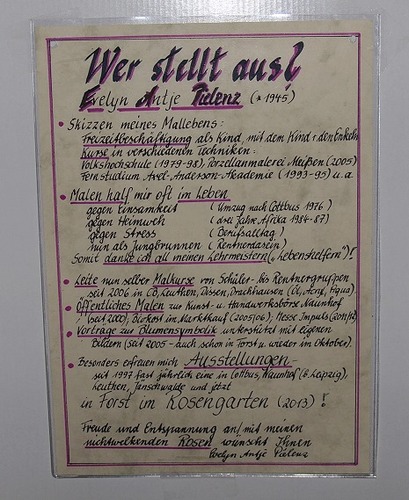 Wer stellt aus?
Evelyn Antje Pielenz (*1945)
• Skizzen meines Mallebens:
Freizeitbeschäftigung als Kind, mit dem Kind + den Enkeln
Kurse in verschiedenen Techniken:
Volkshochschule (1979-98), Porzellanmalerei Meißen (2005)
Fernstudium Axel-Anderson-Akademie (1993-95) u.a
• Malen half mir oft im Leben
gegen Einsamkeit (Umzug nach Cottbus 1976)
gegen Heimweh (drei Jahre Afrika 1984-87)
gegen Stress (Berufsalltag)
nun als Jungbrunnen (Rentnerdasein)
Somit danke ich all meinen Lehrmeistern („Lebenshelfern")!
• Leite nun selber Malkurse von Schüler- bis Rentnergruppen
seit 2006 in CB, Leuthen, Dissen, Drachhausen
• Öffentliches Malen zur Kunst- u. Handwerksbörse Naunhof
(seit 2000), Birkost im Marktkauf (2005/06), Messe Impuls
• Vorträge zur Blumensymbolik unterstützt mit eigenen
Bildern (seit 2005 - auch schon in Forst u. wieder im Oktober).
• Besonders erfreuen mich Ausstellungen -
seit 1997 fast jährlich eine in Cottbus, Naunhof (b. Leipzig),
Leuthen, Jänschwalde und jetzt
in Forst im Rosengarten (2013) !
Freude und Entspannung an/mit meinen
nichtwelkenden Rosen wünscht Ihnen
Evelyn Antje Pielenz